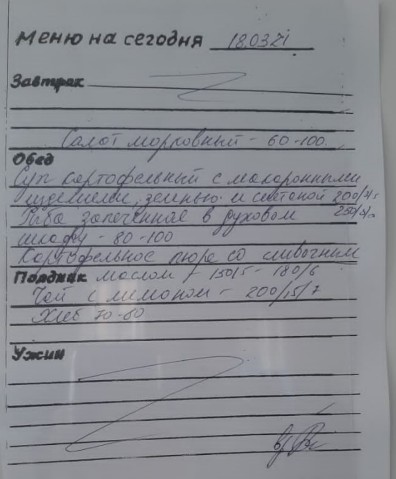 Меню на сегодня 18.03.21
Завтрак
Салат морковный - 60-100
Обед
Суп картофельный с макаронными
изделиями, зеленью и сметаной 200/
Рыба запеченная в духовом 250/
шкафу - 80-100
Картофельное пюре со сливочным
Полдник маслом - 150/5 - 180/6
Чай с лимоном - 200/15/7
Хлеб 40-60
Ужин